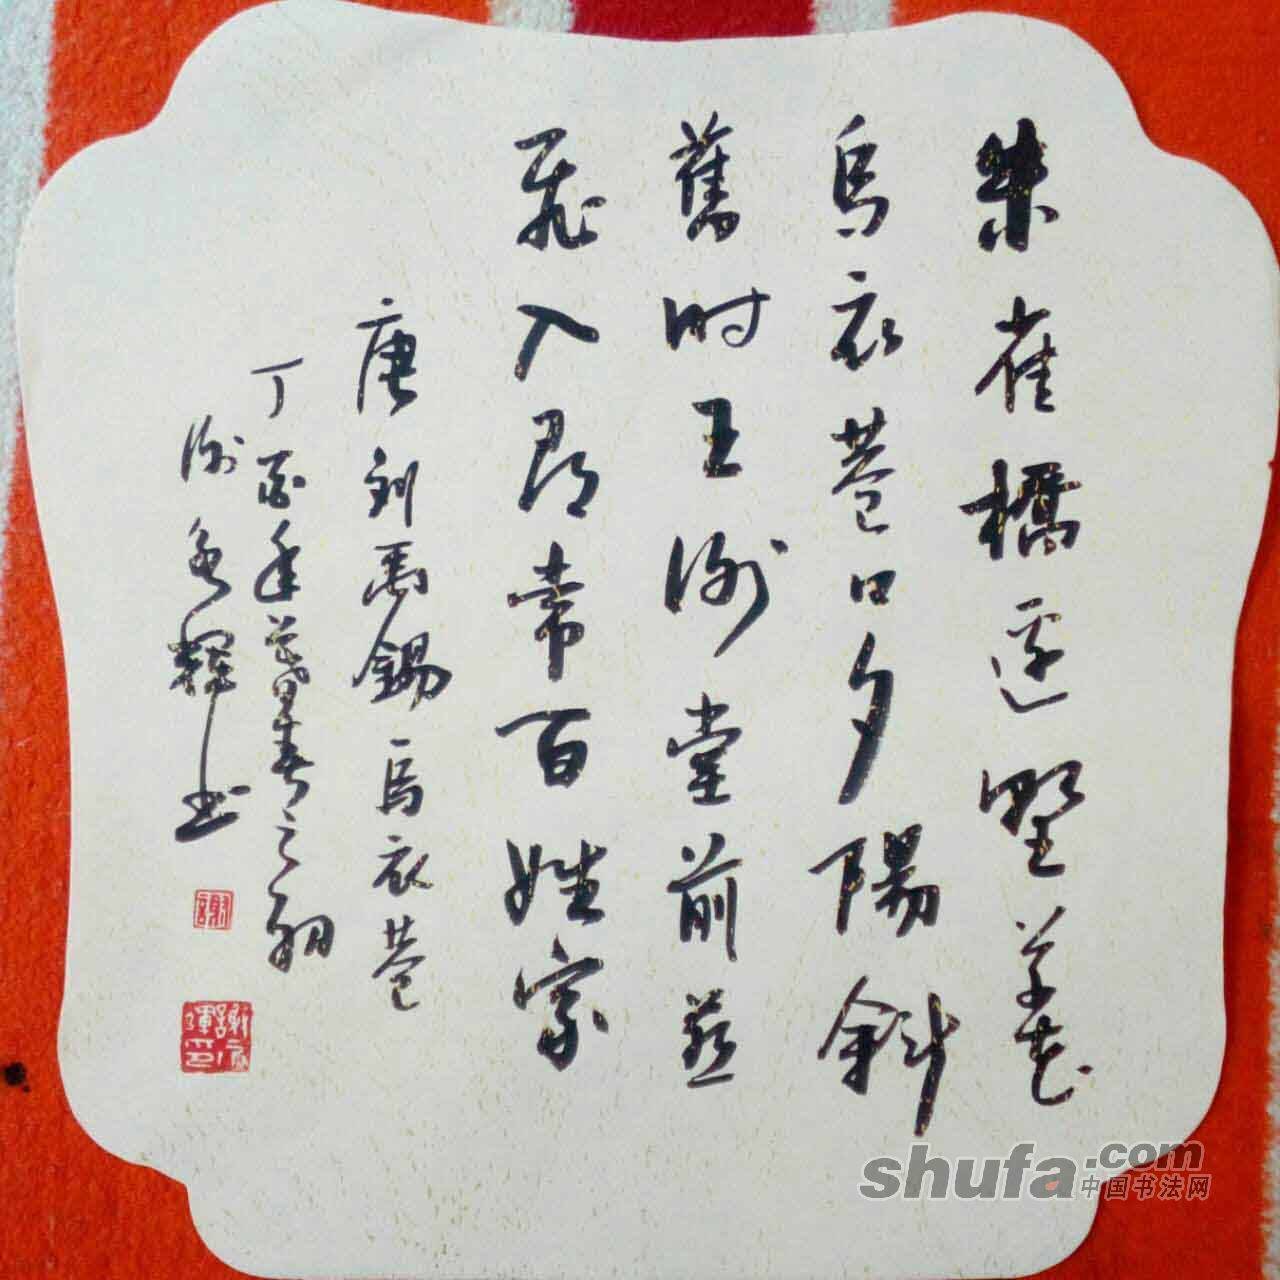 朱雀橋邊野草花
烏衣巷口夕陽斜
舊时王谢堂前燕
飛入尋常百姓家
唐刘禹錫烏衣巷
丁酉年暮春之初
谢輝书
謝
shufa.com
中国书法网